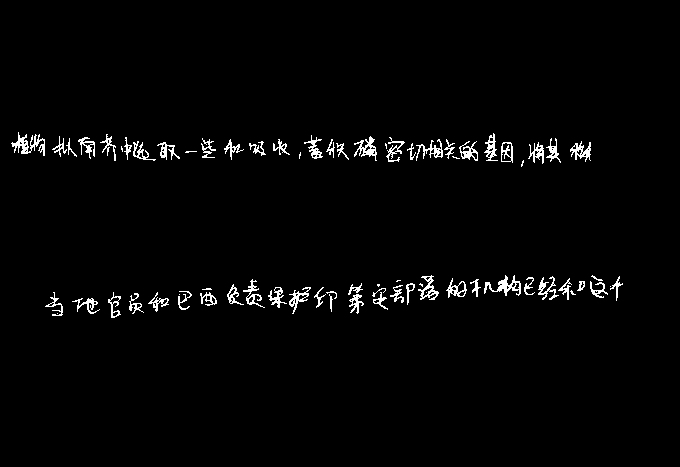 植物拟南芥中选取一些和吸收,蓄积磷密切相关的基因,将其移
当地官员和巴西负责保护印第安部落的机构已经和这个